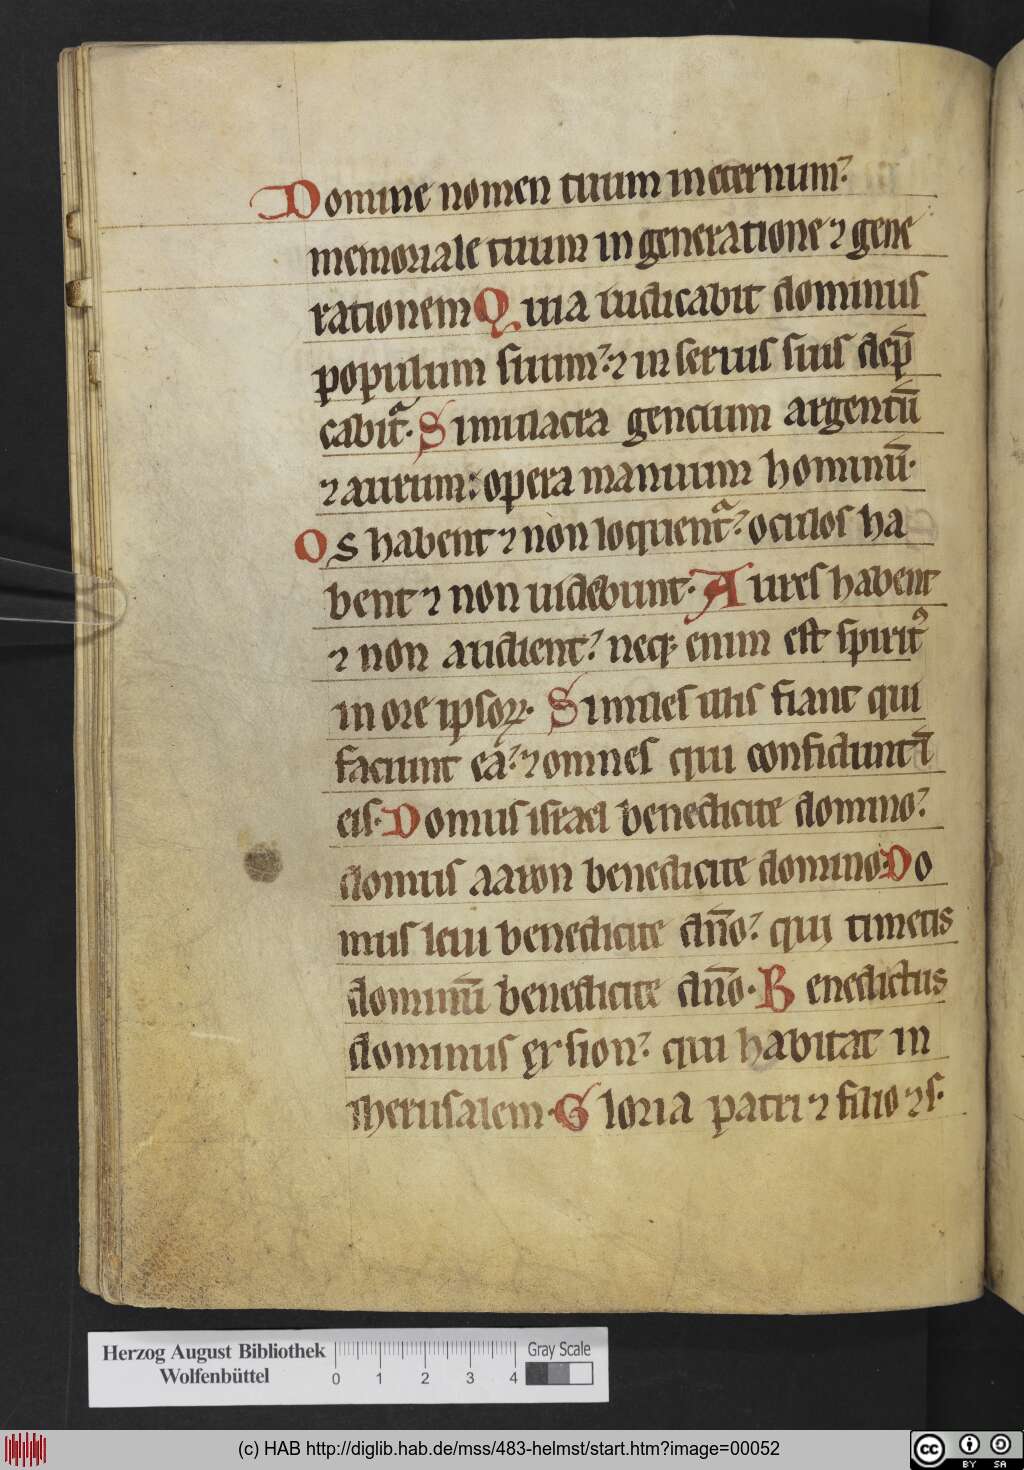 Domine nomen tuum in eternum:
memoriale tuum in generatione ⁊ gene
rationem Quia iudicabit dominus
populum suum: ⁊ in seruis suis dep̄
cabit᷑. Simulacra gentium argentū
⁊ aurum: opera manuum hominū.
Os habent ⁊ non loquent᷑: oculos ha
bent ⁊ non uidebunt. Aures habent
⁊ non audient: neqꝫ enim est spiritꝰ
in ore ipsoꝝ. Similes illis fiant qui
faciunt ea: ⁊ omnes qui confidunt ī
eis. Domus israel benedicite domino:
domus aaron benedicite domino. Do
mus leui benedicite dn̄o: qui timetis
dominū benedicite dn̄o. Benedictus
dominus ex sion: qui habitat in
iherusalem. Gloria patri ⁊ filio ⁊ s.
Herzog August Bibliothek
Wolfenbüttel
0 1 2 3 4
Gray Scale
(c) HAB http://diglib.hab.de/mss/483-helmst/start.htm?image=00052
cc BY SA